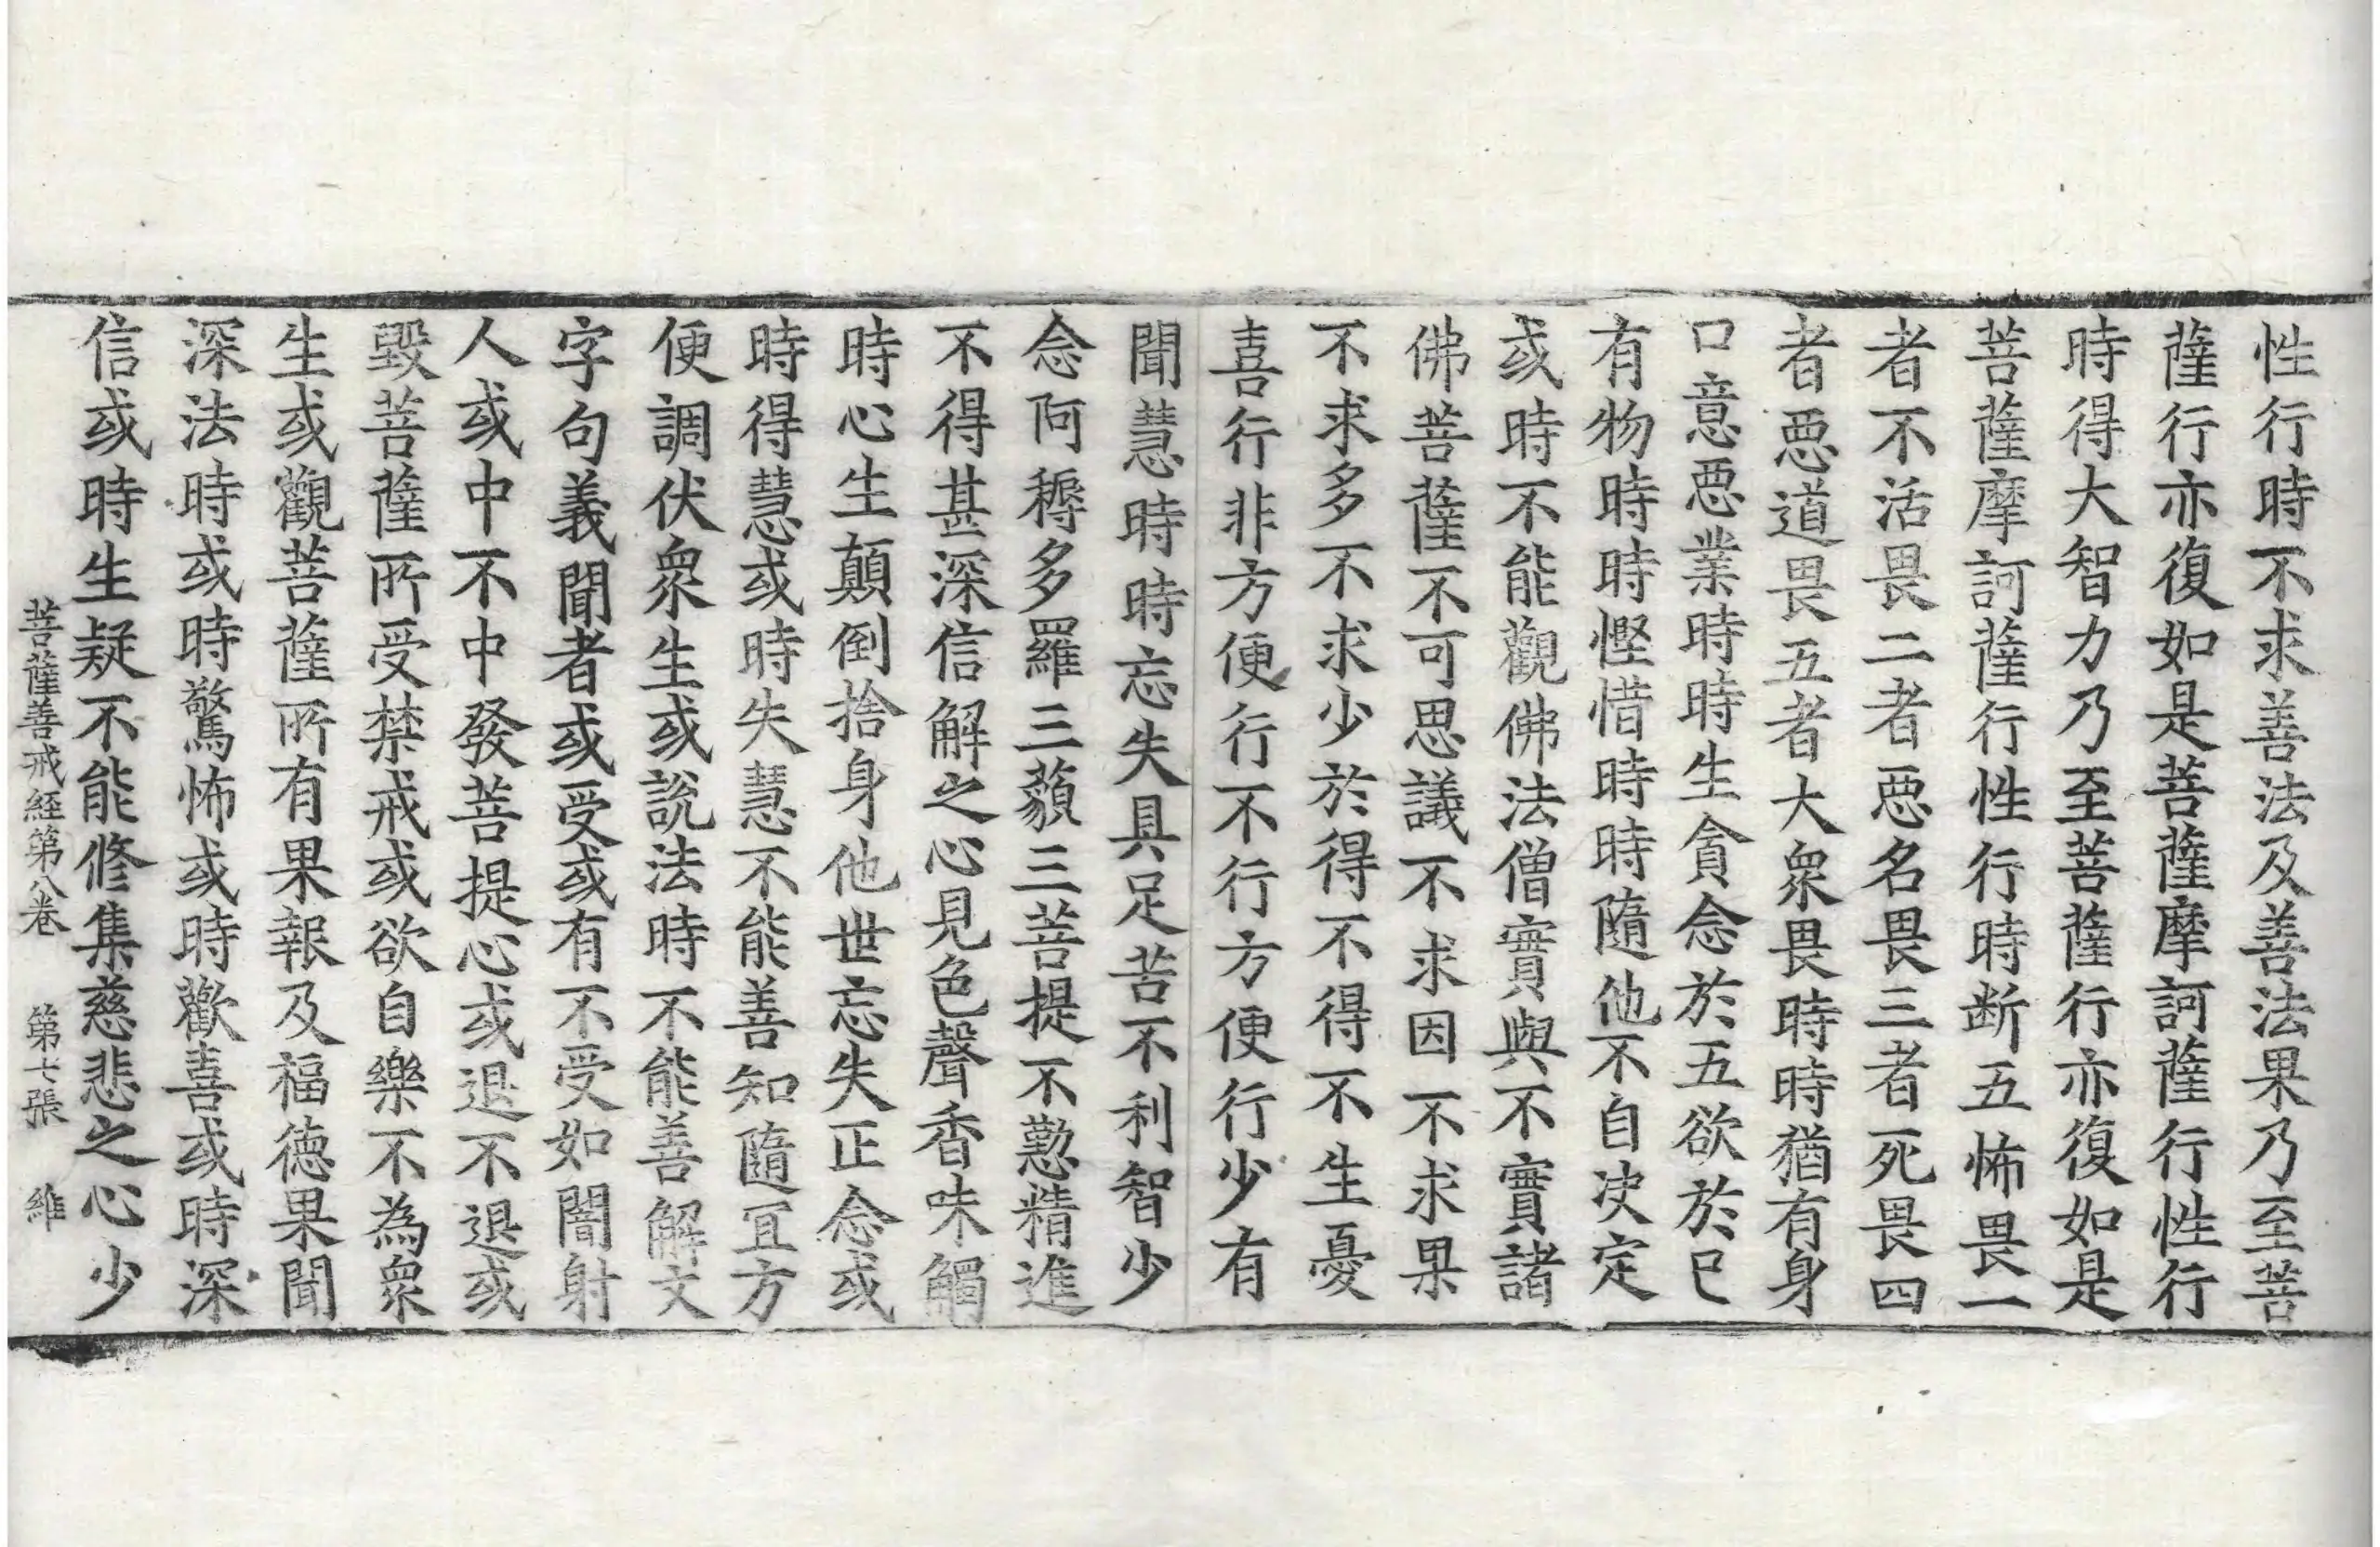 性行時不求善法及善法果乃至菩
薩行亦復如是菩薩摩訶薩行性行
時得大智力乃至菩薩行亦復如是
菩薩摩訶薩行性行時断五怖畏一
者不活畏二者惡名畏三者死畏四
者惡道畏五者大衆畏時時猶有身
口意惡業時時生貪念於五欲於已
有物時時慳惜時時隨他不自决定
或時不能觀佛法僧實與不實諸
佛菩薩不可思議不求因不求果
不求多不求少於得不得不生憂
喜行非方便行不行方便行少有
聞慧時時忘失具足苦不利智少
念阿耨多羅三藐三菩提不懃精進
不得甚深信解之心見色聲香味觸
時心生顛倒捨身他世忘失正念或
時得慧或時失慧不能善知隨冝方
便調伏衆生或說法時不能善解文
字句義聞者或受或有不受如闇射
人或中不中發菩提心或退不退或
毀菩薩所受禁戒或欲自樂不為衆
生或觀菩薩所有果報及福德果聞
深法時或時驚怖或時歡喜或時深
信或時生疑不能修集慈悲之心少
菩薩善戒經第八卷 第七張 維